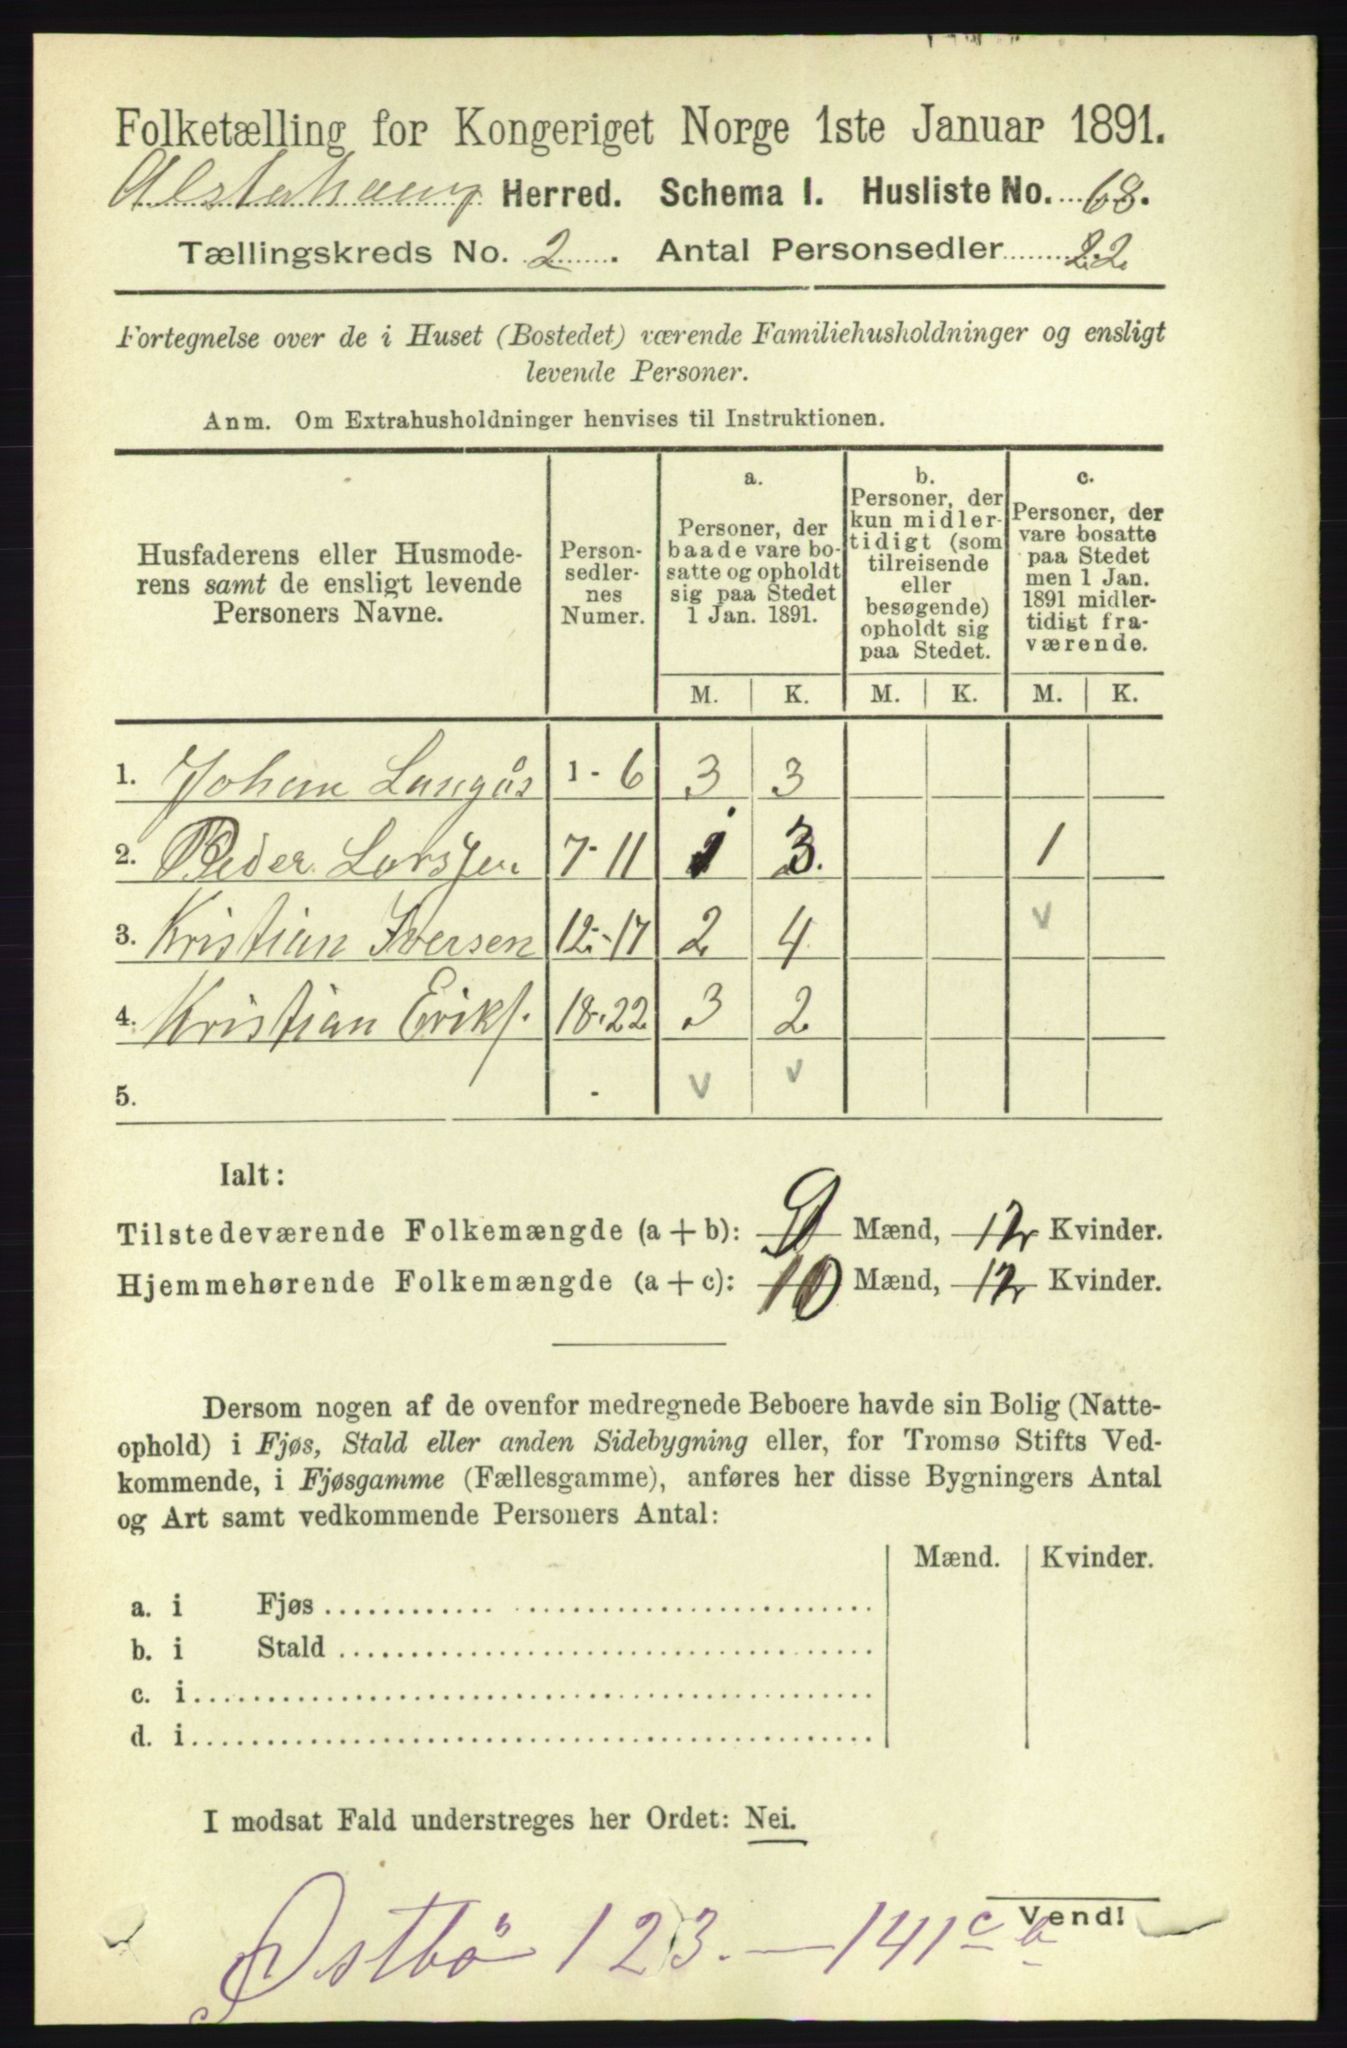 Folketælling for Kongeriget Norge 1ste Januar 1891.
Alstahaug Herred. Schema I. Husliste No. 68.
Tællingskreds No. 2. Antal Personsedler 22
Fortegnelse over de i Huset (Bostedet) værende Familiehusholdninger og ensligt
levende Personer.
Anm. Om Extrahusholdninger henvises til Instruktionen.
Husfaderens eller Husmode-
rens samt de ensligt levende
Personers Navne.
Person-
sedler-
nes
Numer.
a.
Personer, der
baade vare bo-
satte og opholdt
sig paa Stedet
1 Jan. 1891.
b.
Personer, der
kun midler-
tidigt (som
tilreisende
eller
besøgende)
opholdt sig
paa Stedet.
c.
Personer, der
vare bosatte
paa Stedet
men 1 Jan.
1891 midler-
tidigt fra-
værende.
M. K. M. K. M. K.
1. Johan Langås 1-6 3 3
2. Peder Larsen 7-11 1 3. 1
3. Kristian Iversen 12-17 2 4 v
4. Kristian Eriks. 18-22 3 2
5. - v v
Ialt:
Tilstedeværende Folkemængde (a + b): 9 Mænd, 12 Kvinder.
Hjemmehørende Folkemængde (a + c): 10 Mænd, 12 Kvinder.
Dersom nogen af de ovenfor medregnede Beboere havde sin Bolig (Natte-
ophold) i Fjøs, Stald eller anden Sidebygning eller, for Tromsø Stifts Ved-
kommende, i Fjøsgamme (Fællesgamme), anføres her disse Bygningers Antal
og Art samt vedkommende Personers Antal:
Mænd. Kvinder.
a. i Fjøs
b. i Stald
c. i
d. i
I modsat Fald understreges her Ordet: Nei.
Vend!
Østbö 123. — 141 c b